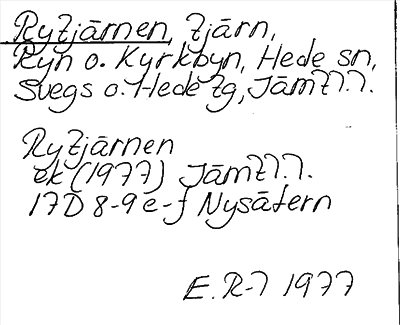 Rytjärnen, tjärn,
Ryn o. Kyrkbyn, Hede sn,
Svegs o. Hede tg, Jämtl.l.
Rytjärnen
ek (1977) Jämtl.l.
17D 8-9 e-f Nysätern
E. R-l 1977